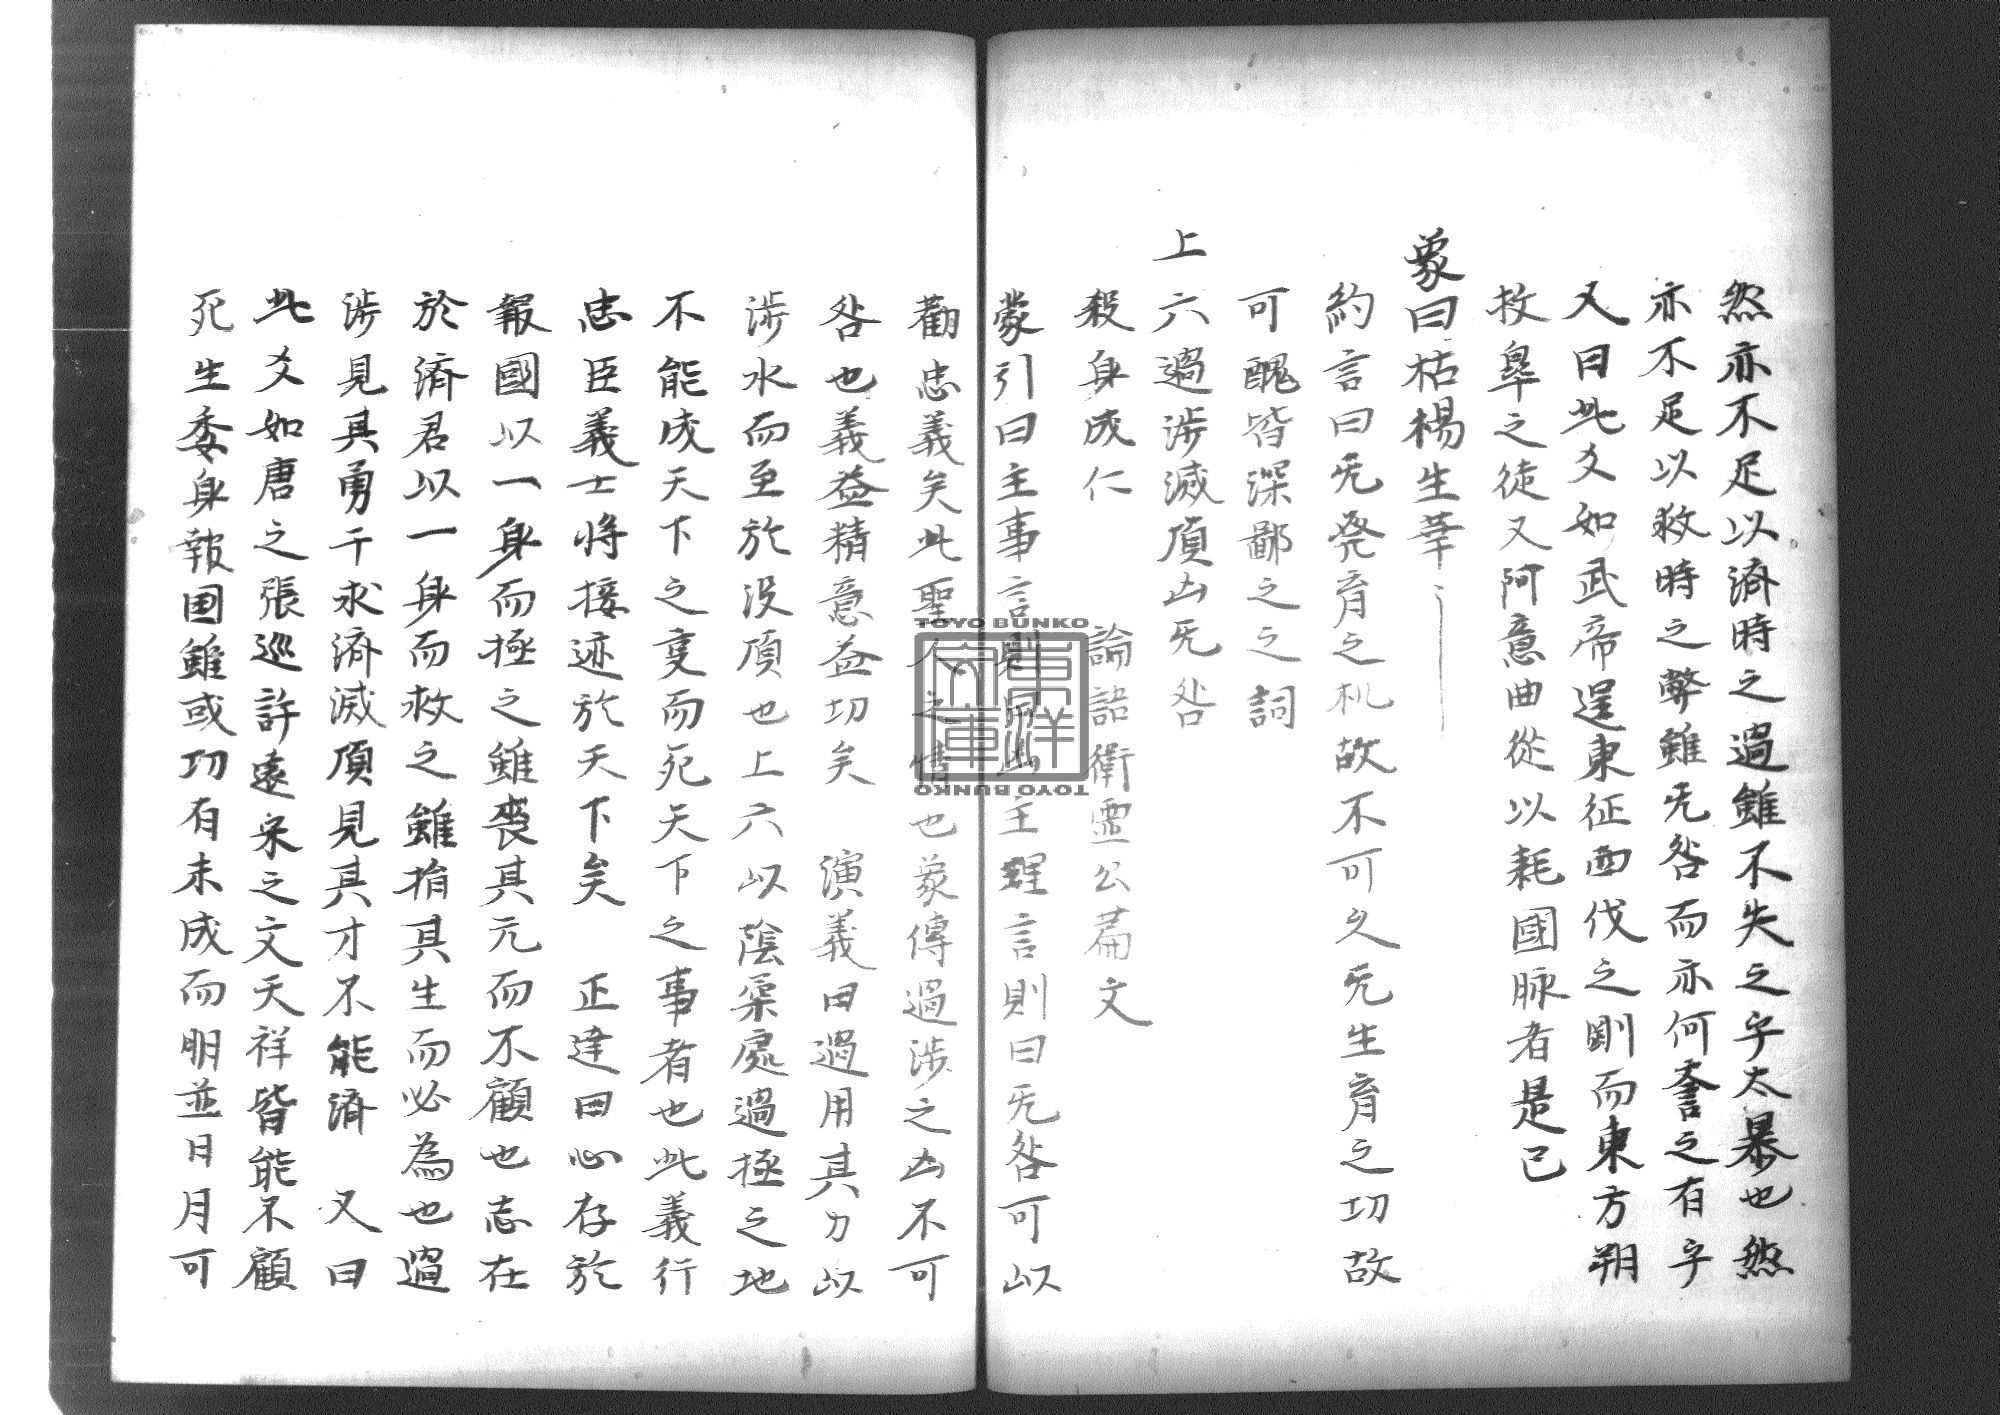 然亦不足以済時之過雖不失之字太暴也然
亦不足以救時之弊雖旡咎而亦何耊之有字
又曰此爻如武帝逞東征西伐之剛而東方朔
枚皐之徒又阿意曲從以耗國脉者是已
象曰枯楊生華
約言曰旡発育之机故不可久旡生育之切故
可醜皆深鄙之之詞
上六過渉滅頂凶旡咎
殺身成仁 論語衛霊公篇文
蒙引曰主事言則曰凶主理言則曰旡咎可以
勸忠義矣此聖人之情也象傳過渉之凶不可
咎也義益精意益切矣 演義曰過用其力以
渉水而至於没頂也上六以陰柔處過極之地
不能成天下之变而死天下之事者也此義行
忠臣義士将接迹於天下矣 正達曰心存於
報國以一身而極之雖喪其元而不顧也志在
於済君以一身而救之雖捐其生而必為也過
渉見其勇于求済滅頂見其才不能済 又曰
此爻如唐之張巡許遠宋之文天祥皆能不顧
死生委身報国雖或功有未成而明並日月可
TOYO BUNKO
東洋文庫
TOYO BUNKO